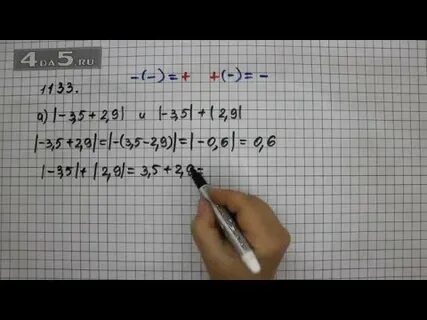 4DA5.RU
-(-) = + +(-) = -
1133.
а) |-3,5+2,9| и |-3,5|+|2,9|
|-3,5+2,9|=|-(3,5-2,9)|=|-0,6|=0,6
|-3,5|+|2,9|=3,5+2,9=